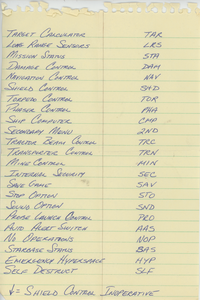 TARGET CALCULATOR TAR
LONG RANGE SENSORS LRS
MISSION STATUS STA
DAMAGE CONTROL DAM
NAVIGATION CONTROL NAV
SHIELD CONTROL SHD
TORPEDO CONTROL TOR
PHASER CONTROL PHA
SHIP COMPUTER CMP
SECONDARY MENU 2ND
TRACTOR BEAM CONTROL TRC
TRANSPORTER CONTROL TRN
MINE CONTROL MIN
INTERNAL SECURITY SEC
SAVE GAME SAV
STOP OPTION STO
SOUND OPTION SND
PROBE LAUNCH CONTROL PRO
AUTO ALERT SWITCH AAS
NO OPERATIONS NOP
STARBASE STATUS BAS
EMERGENCY HYPERSPACE HYP
SELF DESTRUCT SLF
= SHIELD CONTROL INOPERATIVE